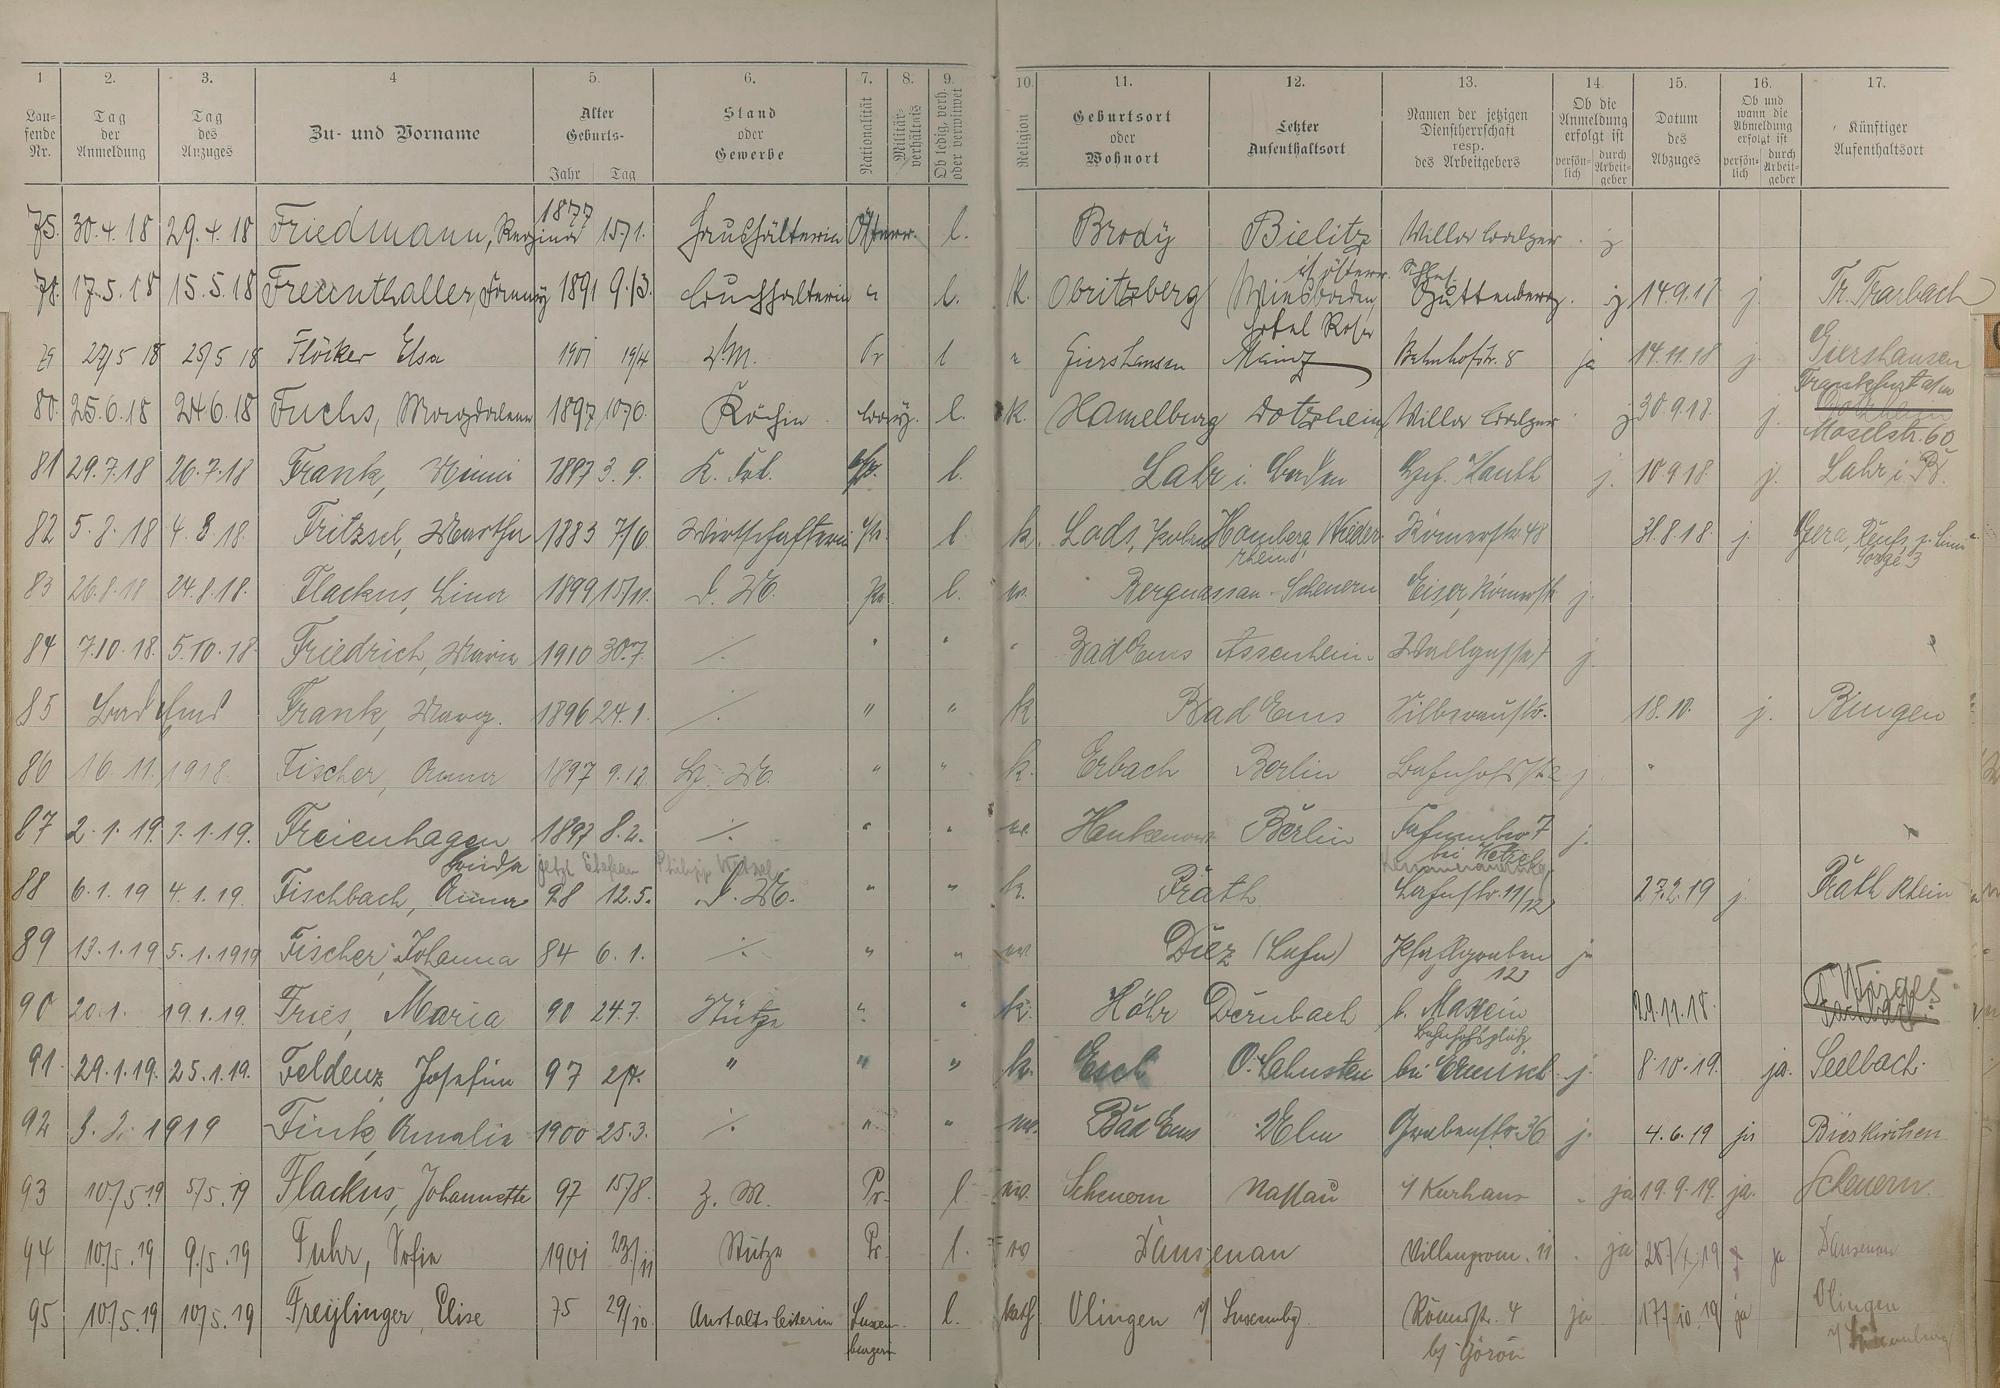 1 2. 3. 4 5. 6. 7. 8. 9. 10. 11. 12. 13. 14. 15. 16. 17.
Lau-fende Nr. Tag der Anmeldung Tag des Anzuges Zu- und Vorname Alter Geburts- Jahr Tag Stand oder Gewerbe Nationalität Militär-verhältnis Ob ledig, verh. oder verwitwet Religion Geburtsort oder Wohnort Letzter Aufenthaltsort Namen der jetzigen Dienstherrschaft resp. des Arbeitgebers Ob die Anmeldung erfolgt ist persön-lich durch Arbeit-geber Datum des Abzuges Ob und wann die Abmeldung erfolgt ist persön-lich durch Arbeit-geber Künftiger Aufenthaltsort
75. 30.4.18 29.4.18 Friedmann, 1877 15/1. Haushälterin Österr. l. Brody Bielitz Villa j
78. 17.5.18 15.5.18 Freienthaller, Fanny 1891 9./3. Buchhalterin " l. K. Obritzberg Wiesbaden, Guttenberg. j 14.9.18 j. Tr. Trarbach
Hotel Rose
79 27/5 18 25/5 18 Flöcker Elsa 1901 19/4 Pr l " Giershausen Mainz Bahnhofstr. 8 ja 14.11.18 j. Giershausen
80. 25.6.18 24.6.18 Fuchs, Magdalena 1897 10/6. Köchin Bay. l. K. Hamelburg Dotzheim Villa j 30.9.18. j. Frankfurt a/m
Moselstr. 60
81 29.7.18 26.7.18 Frank, Minni 1897 3.9. l. Lahr i. Baden j. 10.9.18 j. Lahr i. B.
82 5.8.18 4.8.18. Fritzsch, Martha 1883 7/6. Wirtschafterin l k. Lods, Polen Homberg, Nieder-rhein Römerstr. 48 31.8.18. j Gera, Reuss
83 26.8.18 24.8.18. Flackus, Lina 1899 15/11. D. M. Pr. l. w. Bergnassau-Scheuern Eiser, Römerstr j.
84 7.10.18. 5.10.18. Friedrich, Maria 1910 30.7. ./. " " " Bad Ems Assenheim Wallgasse j.
85 Bad Ems Frank, Marg. 1896 24.1. ./. " " k. Bad Ems Silberaustr. 18.10. j. Bingen
86 16.11.1918. Fischer, Anna 1897 9.12. H. M. " " k. Erbach Berlin Bahnhofstr. 2 j
87 2.1.19. 1.1.19. Freienhagen 1897 8.2. ./. " " w. Berlin 7 j.
jetzt Ehefrau Philipp Wetzel bei Wetzel
88 6.1.19 4.1.19. Fischbach, Anna 98 12.5. D. M. " " k. Prath Lahnstr. 11/12 27.2.19 j. Prath Rhein
89 13.1.19 5.1.1919 Fischer, Johanna 84 6.1. ./. " " w Diez (Lahn) Pfahlgraben 12 ja
90 20.1. 19.1.19. Fries, Maria 90 24.7. Stütze " " k. Höhr Dernbach b. Massein 29.11.18. Wirges
Bahnhofsplatz
91. 29.1.19. 25.1.19. Feldenz, Josefine 97 " " " k. Esch O.-Lahnstein bei j. 8.10.19. ja. Seelbach.
92 3.2.1919 Fink, Amalie 1900 25.3. ./. " " w. Bad Ems Elm Grabenstr. 36 j. 4.6.19 ja Bieskirchen
93 10./5.19 5/5.19 Flackus, Johannette 97 15/8. Z. M. Pr. l. w. Scheuern Nassau Kurhaus ja 19.9.19. ja. Scheuern.
94 10/5.19 9./5.19 Fuhr, Sofie 1901 23./11 Stütze Pr. l. w Dausenau Villenprom. 11 ja 28/ 19 ja Dausenau
95 10/5.19 10/5.19 Freylinger, Elise 75 29/10 Anstaltsleiterin Luxem-burgerin l. kath. Ulingen i/ Luxembg. Römerstr. 4 ja 17/10.19 ja Ulingen
i/ Luxemburg